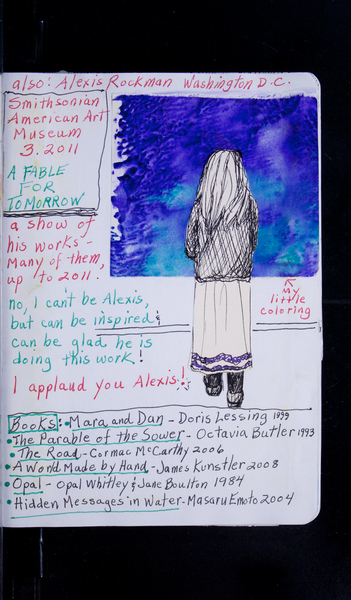 also: Alexis Rockman Washington D.C.
Smithsonian
American Art
Museum
3.2011
A FABLE
FOR
TOMORROW
a show of
his works -
many of them,
up to 2011.
no, I can't be Alexis,
but can be inspired &
can be glad he is
doing this work!
I applaud you Alexis!
my
little
coloring
Books: • Mara and Dan - Doris Lessing 1999
• The Parable of the Sower - Octavia Butler 1993
• The Road - Cormac McCarthy 2006
• A World Made by Hand - James Kunstler 2008
• Opal - Opal Whitley & Jane Boulton 1984
• Hidden Messages in Water - Masaru Emoto 2004